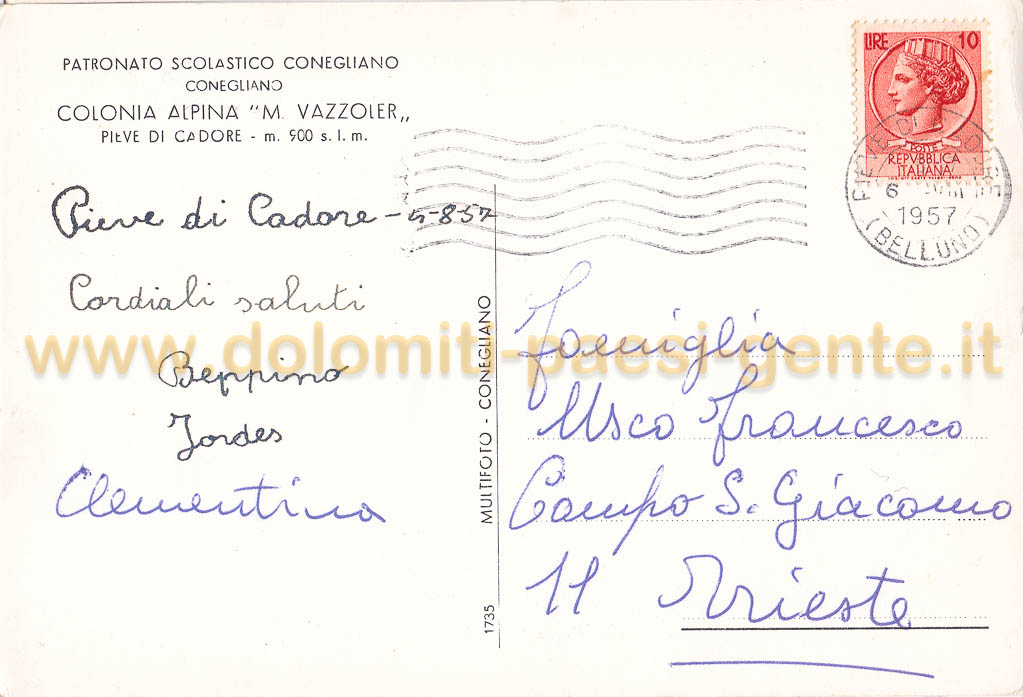 PATRONATO SCOLASTICO CONEGLIANO
CONEGLIANO
COLONIA ALPINA "M. VAZZOLER„
PIEVE DI CADORE - m. 900 s. l. m.
Pieve di Cadore - 5-8-57
Cordiali saluti
Beppino
Jordes
Clementina
MULTIFOTO - CONEGLIANO
1735
LIRE 10
POSTE
REPVBBLICA
ITALIANA
PIEVE DI CADORE
6
1957
(BELLUNO)
famiglia
Usco Francesco
Campo S. Giacomo
11 Trieste
www.dolomiti-paesi-gente.it